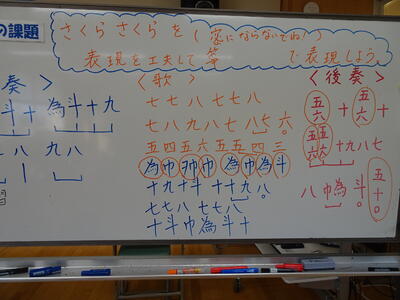 の課題
さくらさくらを(変にならないでね!)
表現を工夫して箏 で表現しよう。
奏>
斗十為斗十九
八 九八
<歌>
七七八七七八
七八九八七八七六。
五四五六五五四三
為巾 為巾為斗
十九十斗十十九八。
七七八七七八
十斗巾為斗十
<後奏>
五六+五六+
五六五六十九八七
八巾為斗五十。